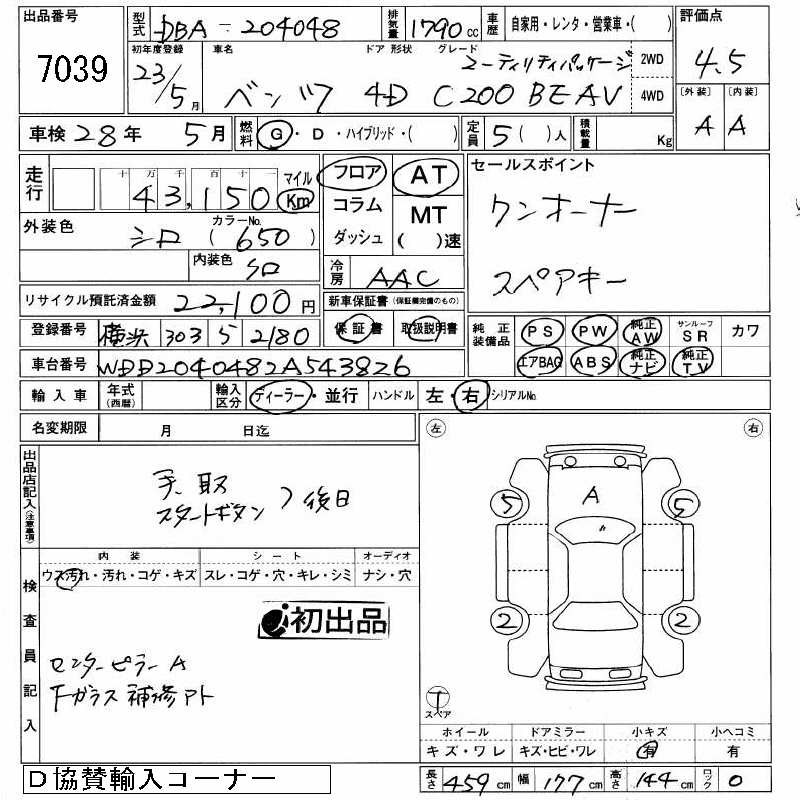 出品番号 7039
型式 DBA-204048 排気量 1790 cc 車歴 自家用・レンタ・営業車・( )
評価点 4.5
初年度登録 23/5月 車名 ドア 形状 グレード
ユーティリティパッケージ 2WD
ベンツ 4D C200 BE AV 4WD
〔外装〕 A 〔内装〕 A
車検 28年 5月 燃料 G・D・ハイブリッド・( ) 定員 5( )人 積載量 Kg
走行 十万千百十一 43,150 マイル Km
フロア コラム ダッシュ AT MT ( )速
セールスポイント
ワンオーナー
スペアキー
外装色 シロ カラーNo. (650)
内装色 クロ
冷房 AAC
リサイクル預託済金額 22,100円
新車保証書(保証継続のもの)
保証書 取扱説明書
登録番号 横浜 303 ら 2180
純正装備品 PS PW 純正AW サンルーフSR カワ
エアBAG ABS 純正ナビ 純正TV
車台番号 WDD2040482A543826
輸入車 年式(西暦) 輸入区分 ディーラー・並行 ハンドル 左・右 シリアルNo.
名変期限 月 日迄
左 右
出品店記入(注意事項)
手、取
スタートボタン
後日
内装 シート オーディオ
ウス汚れ・汚れ・コゲ・キズ スレ・コゲ・穴・キレ・シミ ナシ・穴
検査員記入
初出品
センターピラー A
Fガラス補修アト
A
5 5
2 2
T
スペア
ホイール ドアミラー 小キズ 小ヘコミ
キズ・ワレ キズ・ヒビ・ワレ 有 有
D協賛輸入コーナー
長さ 459cm 幅 177cm 高さ 144cm ロック 0